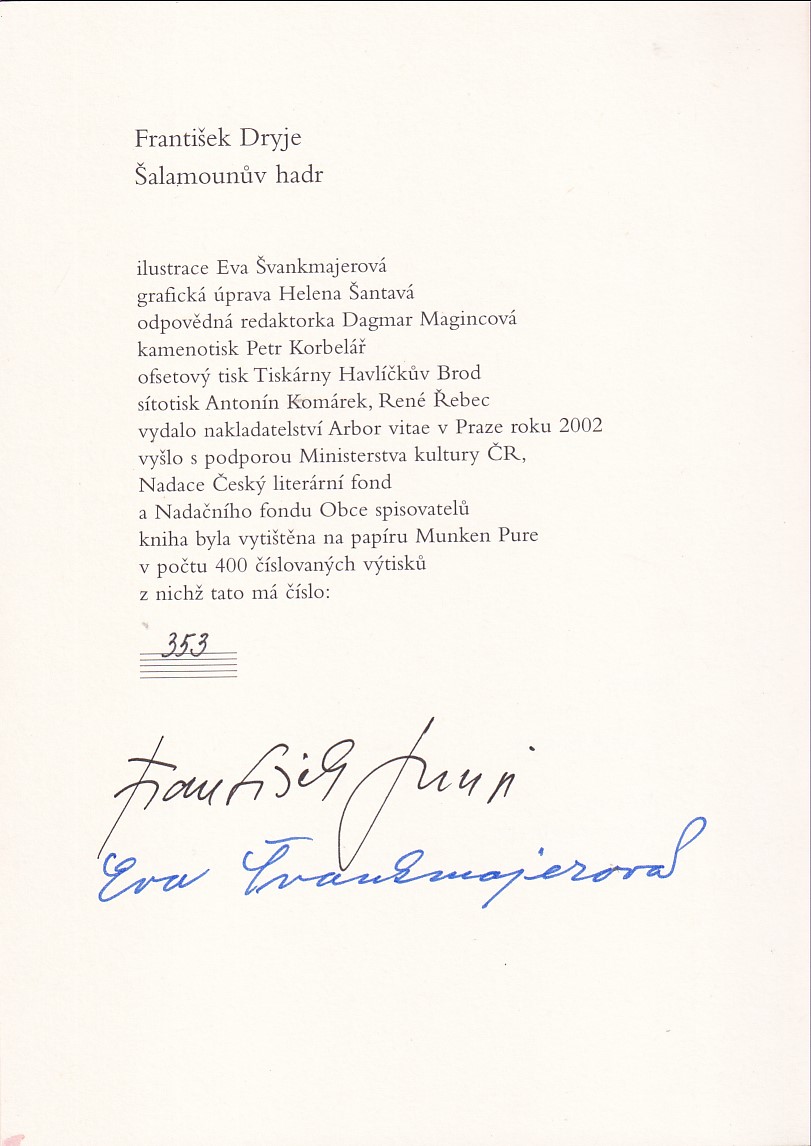 František Dryje
Šalamounův hadr
ilustrace Eva Švankmajerová
grafická úprava Helena Šantavá
odpovědná redaktorka Dagmar Magincová
kamenotisk Petr Korbelář
ofsetový tisk Tiskárny Havlíčkův Brod
sítotisk Antonín Komárek, René Řebec
vydalo nakladatelství Arbor vitae v Praze roku 2002
vyšlo s podporou Ministerstva kultury ČR,
Nadace Český literární fond
a Nadačního fondu Obce spisovatelů
kniha byla vytištěna na papíru Munken Pure
v počtu 400 číslovaných výtisků
z nichž tato má číslo:
353
František Dryje
Eva Švankmajerová